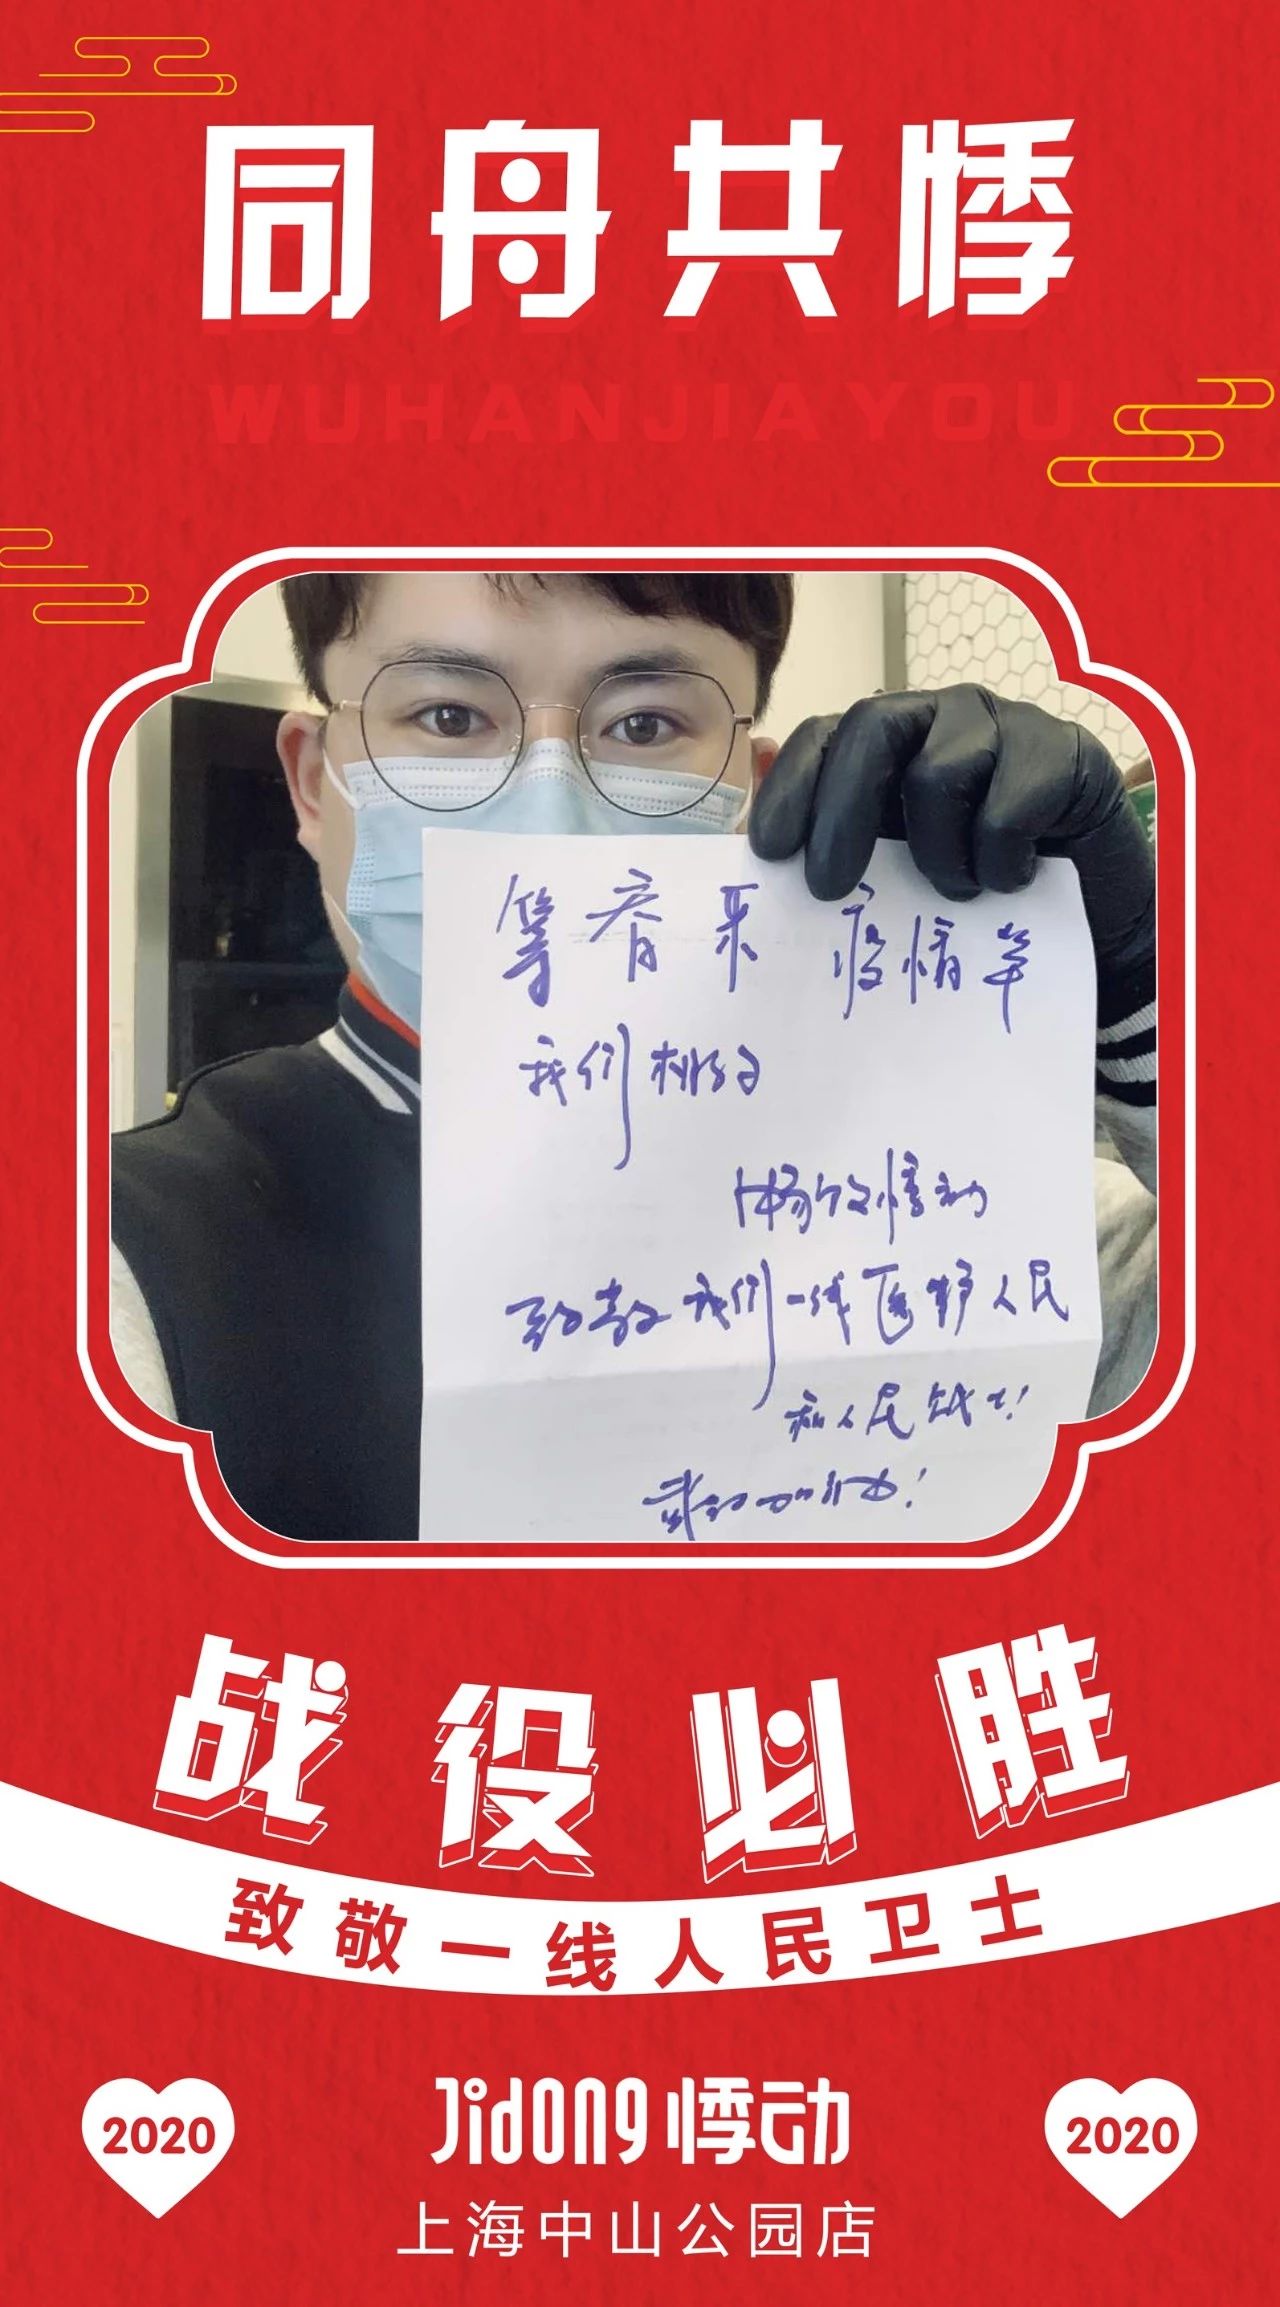 同舟共悸
WUHANJIAYOU
等春来 疫情卒
我们摘了口
畅饮悸动
致敬我们一线医护人民
和人民战士!
武汉加油!
战役必胜
致敬一线人民卫士
2020
Jidong 悸动
2020
上海中山公园店